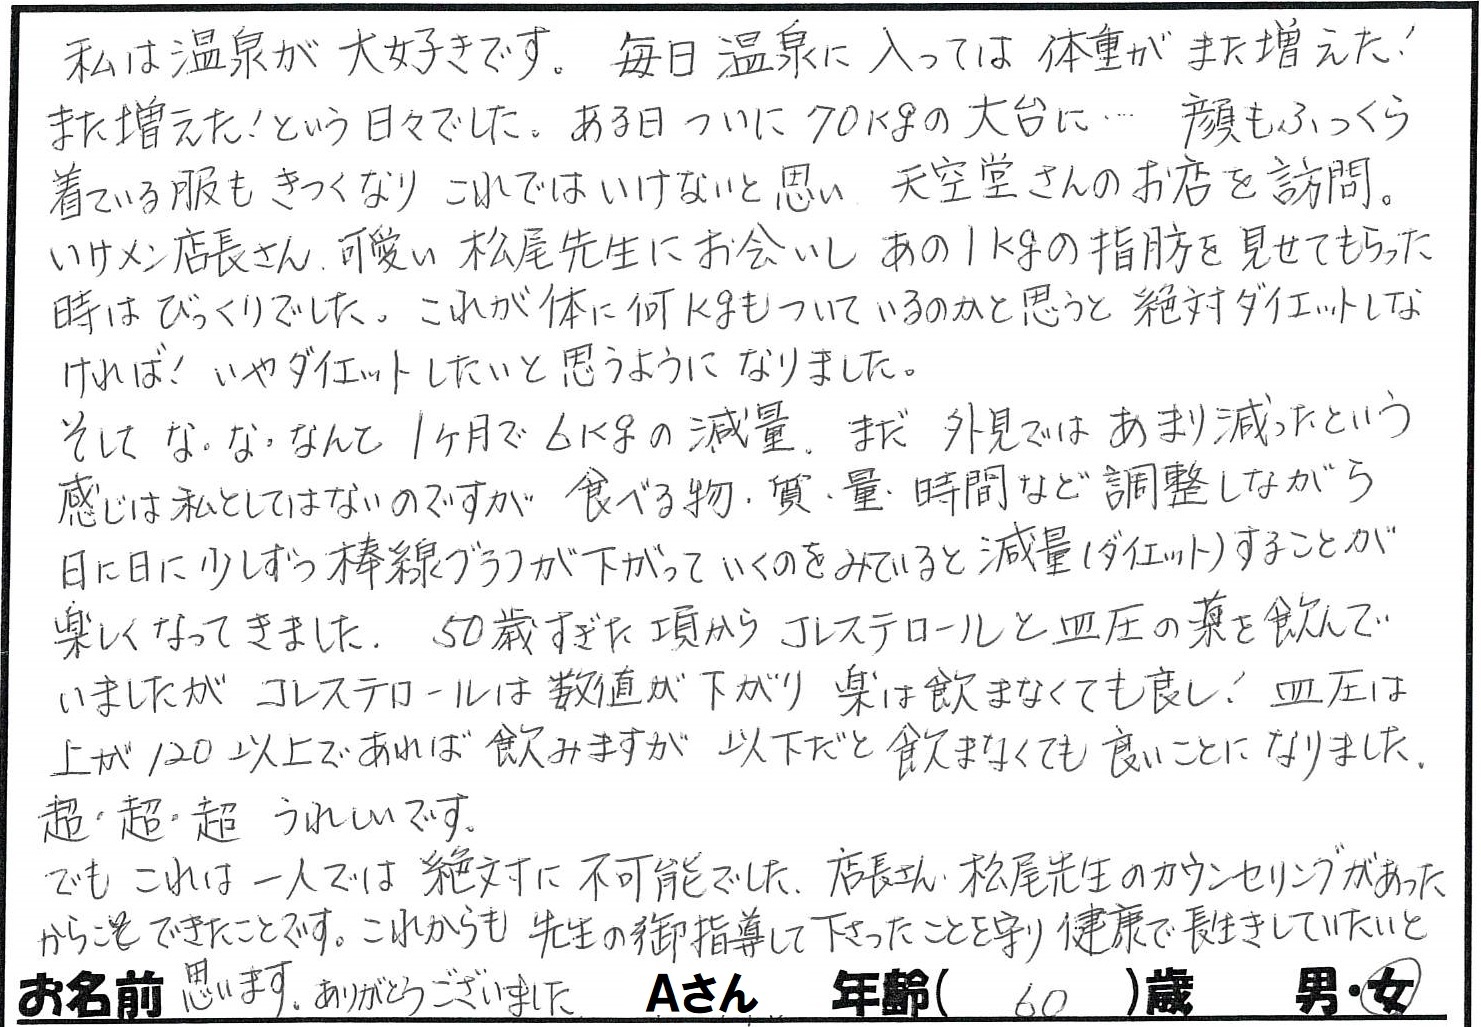 私は温泉が大好きです。毎日温泉に入っては体重がまた増えた!
また増えた!という日々でした。ある日ついに70kgの大台に… 顔もふっくら
着ている服もきつくなりこれではいけないと思い、天空堂さんのお店を訪問。
いけメン店長さん、可愛い松尾先生にお会いしあの1kgの指肪を見せてもらった
時はびっくりでした。これが体に何kgもついているのかと思うと絶対ダイエットしな
ければ!いやダイエットしたいと思うようになりました。
そしてな・な・なんと1ヶ月で6kgの減量、まだ外見ではあまり減ったという
感じは私としてはないのですが食べる物・質・量・時間など調整しながら
日に日に少しずつ棒線グラフが下がっていくのをみていると減量(ダイエット)することが
楽しくなってきました。50歳すぎた頃からコレステロールと血圧の薬を飲んで
いましたがコレステロールは数値が下がり楽は飲まなくても良し!血圧は
上が120以上であれば飲みますが以下だと飲まなくても良いことになりました。
超・超・超うれしいです。
でもこれは一人では絶対に不可能でした、店長さん・松尾先生のカウンセリングがあった
からこそできたことです。これからも先生の御指導して下さったことを守り健康で長生きしていたいと
思います。ありがとうございました
お名前 Aさん 年齢(60)歳 男・女